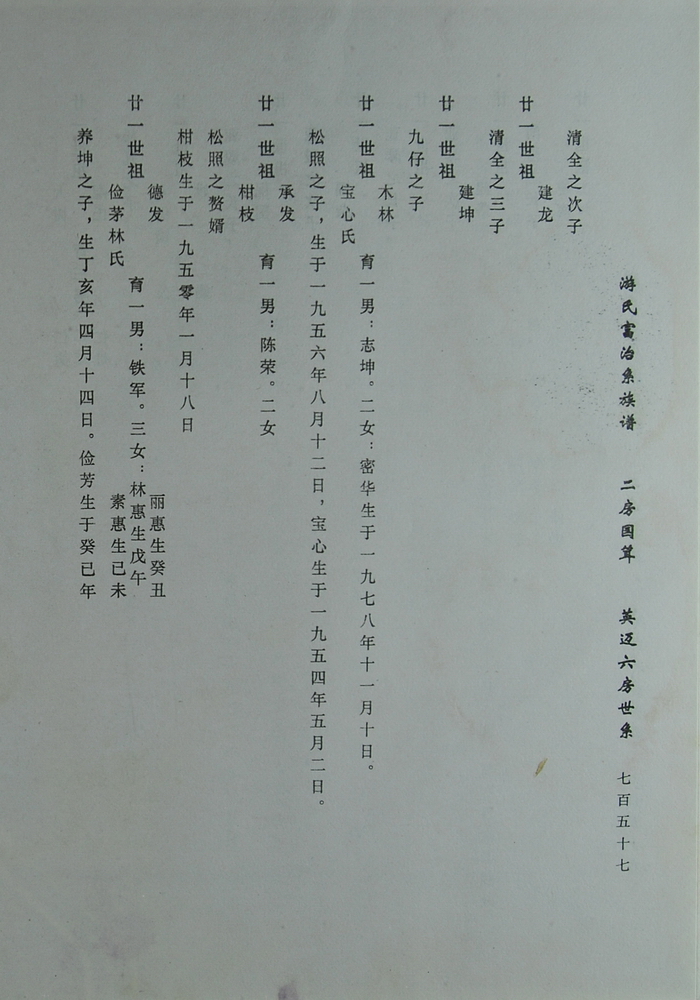 游氏富治系族谱 二房国茸 英迈六房世系 七百五十七
清全之次子
建龙
廿一世祖
清全之三子
建坤
廿一世祖
九仔之子
木林
廿一世祖 育一男：志坤。二女：密华生于一九七八年十一月十日。
宝心氏
松照之子，生于一九五六年八月十二日，宝心生于一九五四年五月二日。
承发
廿一世祖 育一男：陈荣。二女
柑枝
松照之赘婿
柑枝生于一九五零年一月十八日
德发 丽惠生癸丑
廿一世祖 育一男：铁军。三女：林惠生戊午
俭茅林氏 素惠生已未
养坤之子，生丁亥年四月十四日。俭芳生于癸已年